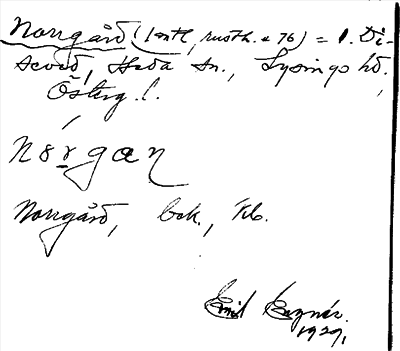 Norrgård (1 mtl, rusth. № 76) = 1. Di-
sevid, Heda sn., Lysings hd,
Österg. l.
Nórgan
Norrgård, bok., kb.
Emil
1929.